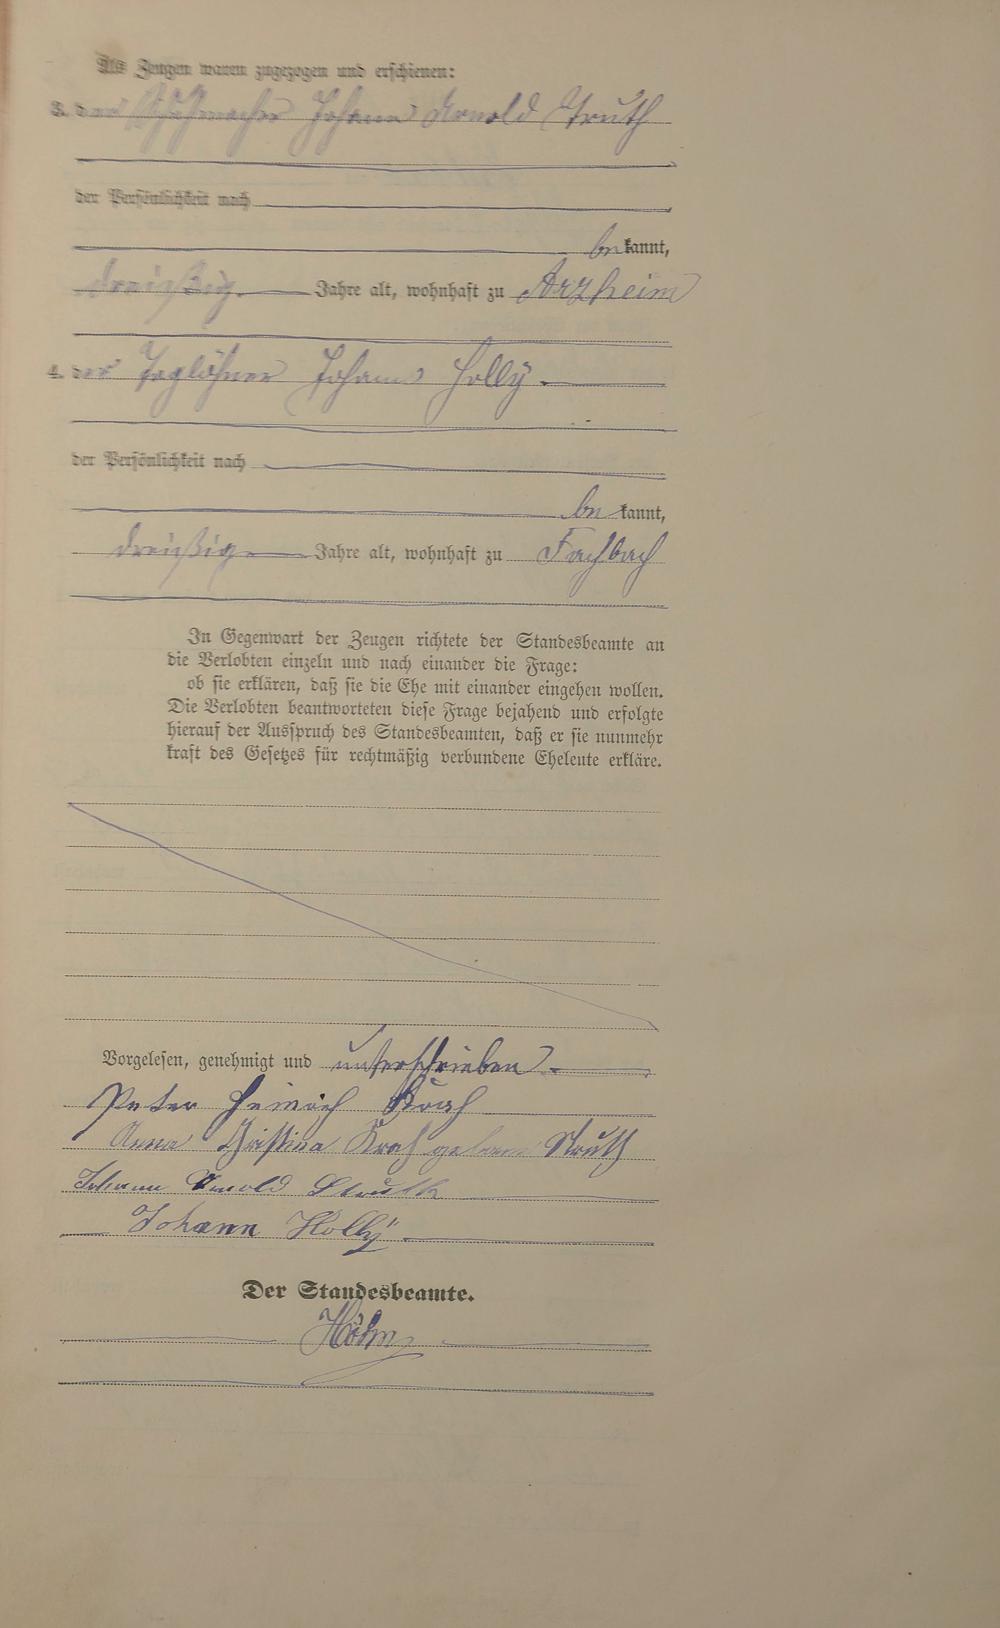 Als Zeugen waren zugezogen und erschienen:
3. der Schuhmacher Johann Arnold Struth
der Persönlichkeit nach
bekannt,
dreißig Jahre alt, wohnhaft zu Arzheim
4. der Taglöhner Johann Holly
der Persönlichkeit nach
bekannt,
dreißig Jahre alt, wohnhaft zu Fachbach
In Gegenwart der Zeugen richtete der Standesbeamte an
die Verlobten einzeln und nach einander die Frage:
ob sie erklären, daß sie die Ehe mit einander eingehen wollen.
Die Verlobten beantworteten diese Frage bejahend und erfolgte
hierauf der Ausspruch des Standesbeamten, daß er sie nunmehr
kraft des Gesetzes für rechtmäßig verbundene Eheleute erkläre.
Vorgelesen, genehmigt und unterschrieben
Peter Heinrich Krah
Anna Christina Krah geborne Struth
Johann Arnold Struth
Johann Holly
Der Standesbeamte.